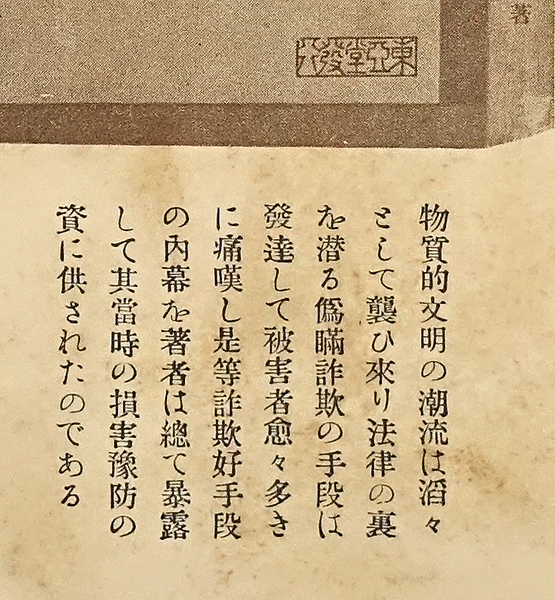 著
東亞堂發行
物質的文明の潮流は滔々
として襲ひ來り法律の裏
を潜る僞瞞詐欺の手段は
發達して被害者愈々多き
に痛嘆し是等詐欺好手段
の內幕を著者は總て暴露
して其當時の損害豫防の
資に供されたのである